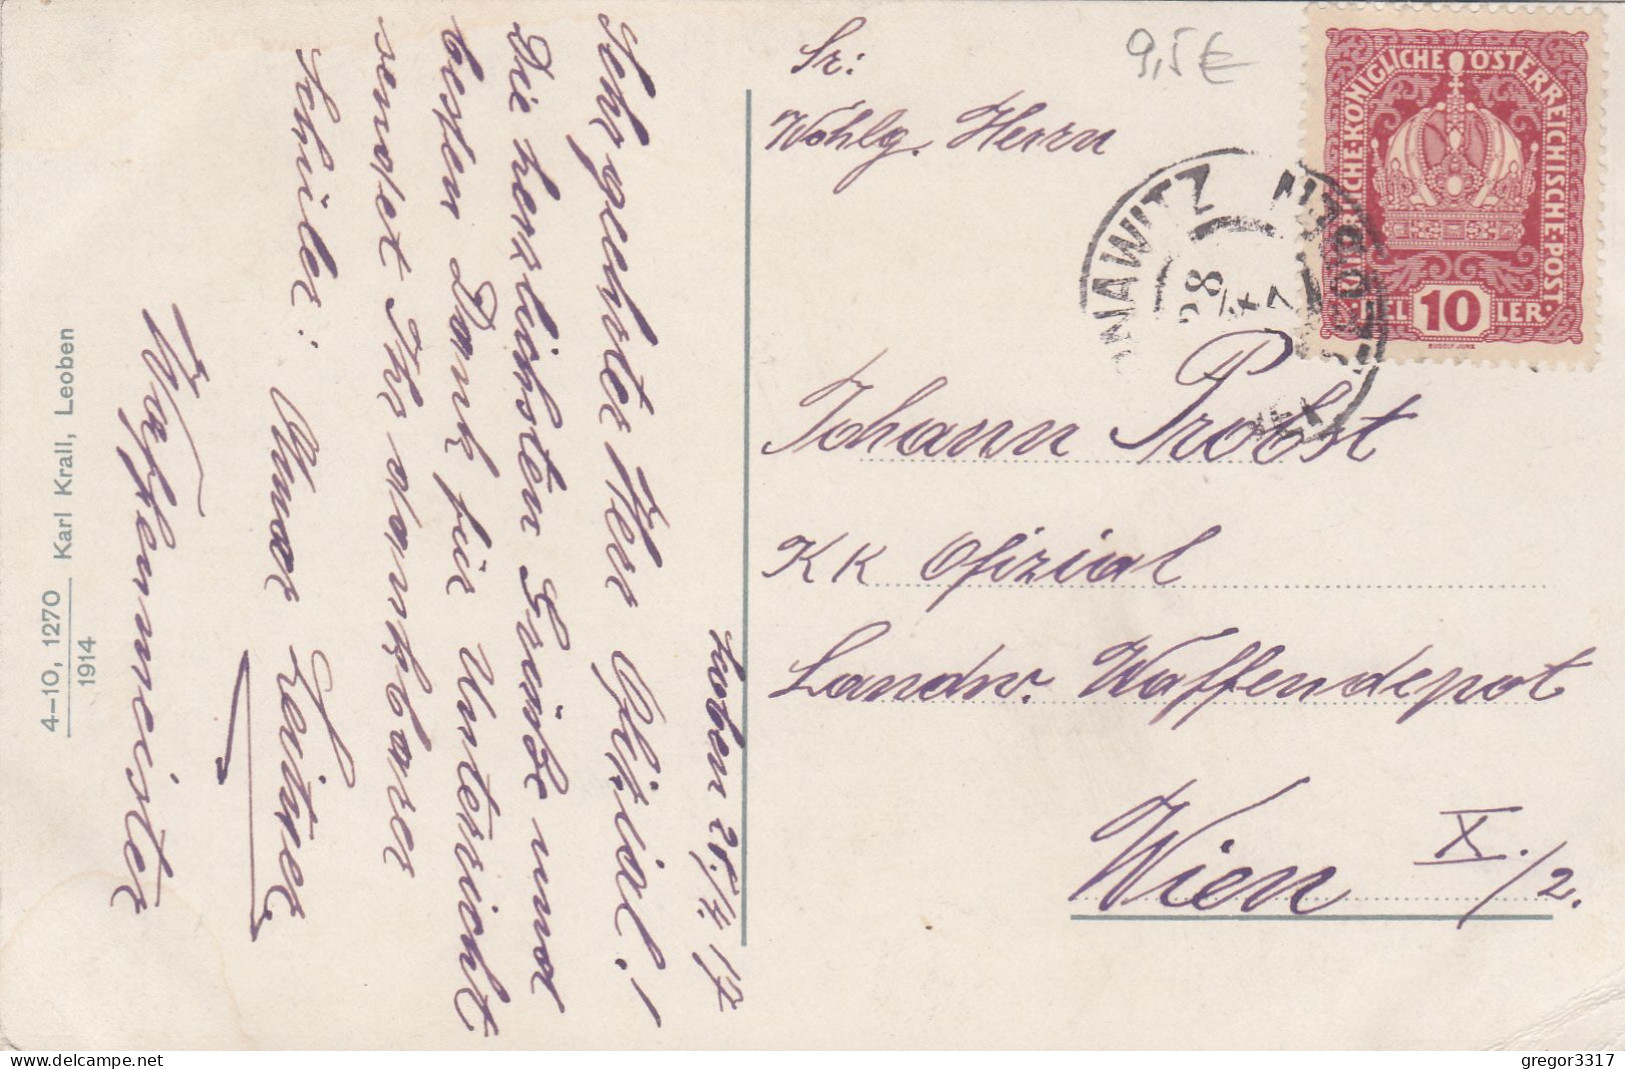 Sehr geehrter Herr Ofizial!
Die herzlichsten Grüße und
besten Dank für Unterricht
sendet Ihr dankbarer
Schüler: Leitner
Waffenmeister
Leoben 28/4 17
4–10, 1270 Karl Krall, Leoben
1914
9,5€
Sr:
Wohlg. Herrn
Johann Probst
KK Ofizial
Landw. Waffendepot
Wien X./2.
KAISERLICHE·KÖNIGLICHE ÖSTERREICHISCHE·POST·
HEL 10 LER·
RUDOLF JUNK
NAWITZ
28
4
gregor3317
delcampe.net